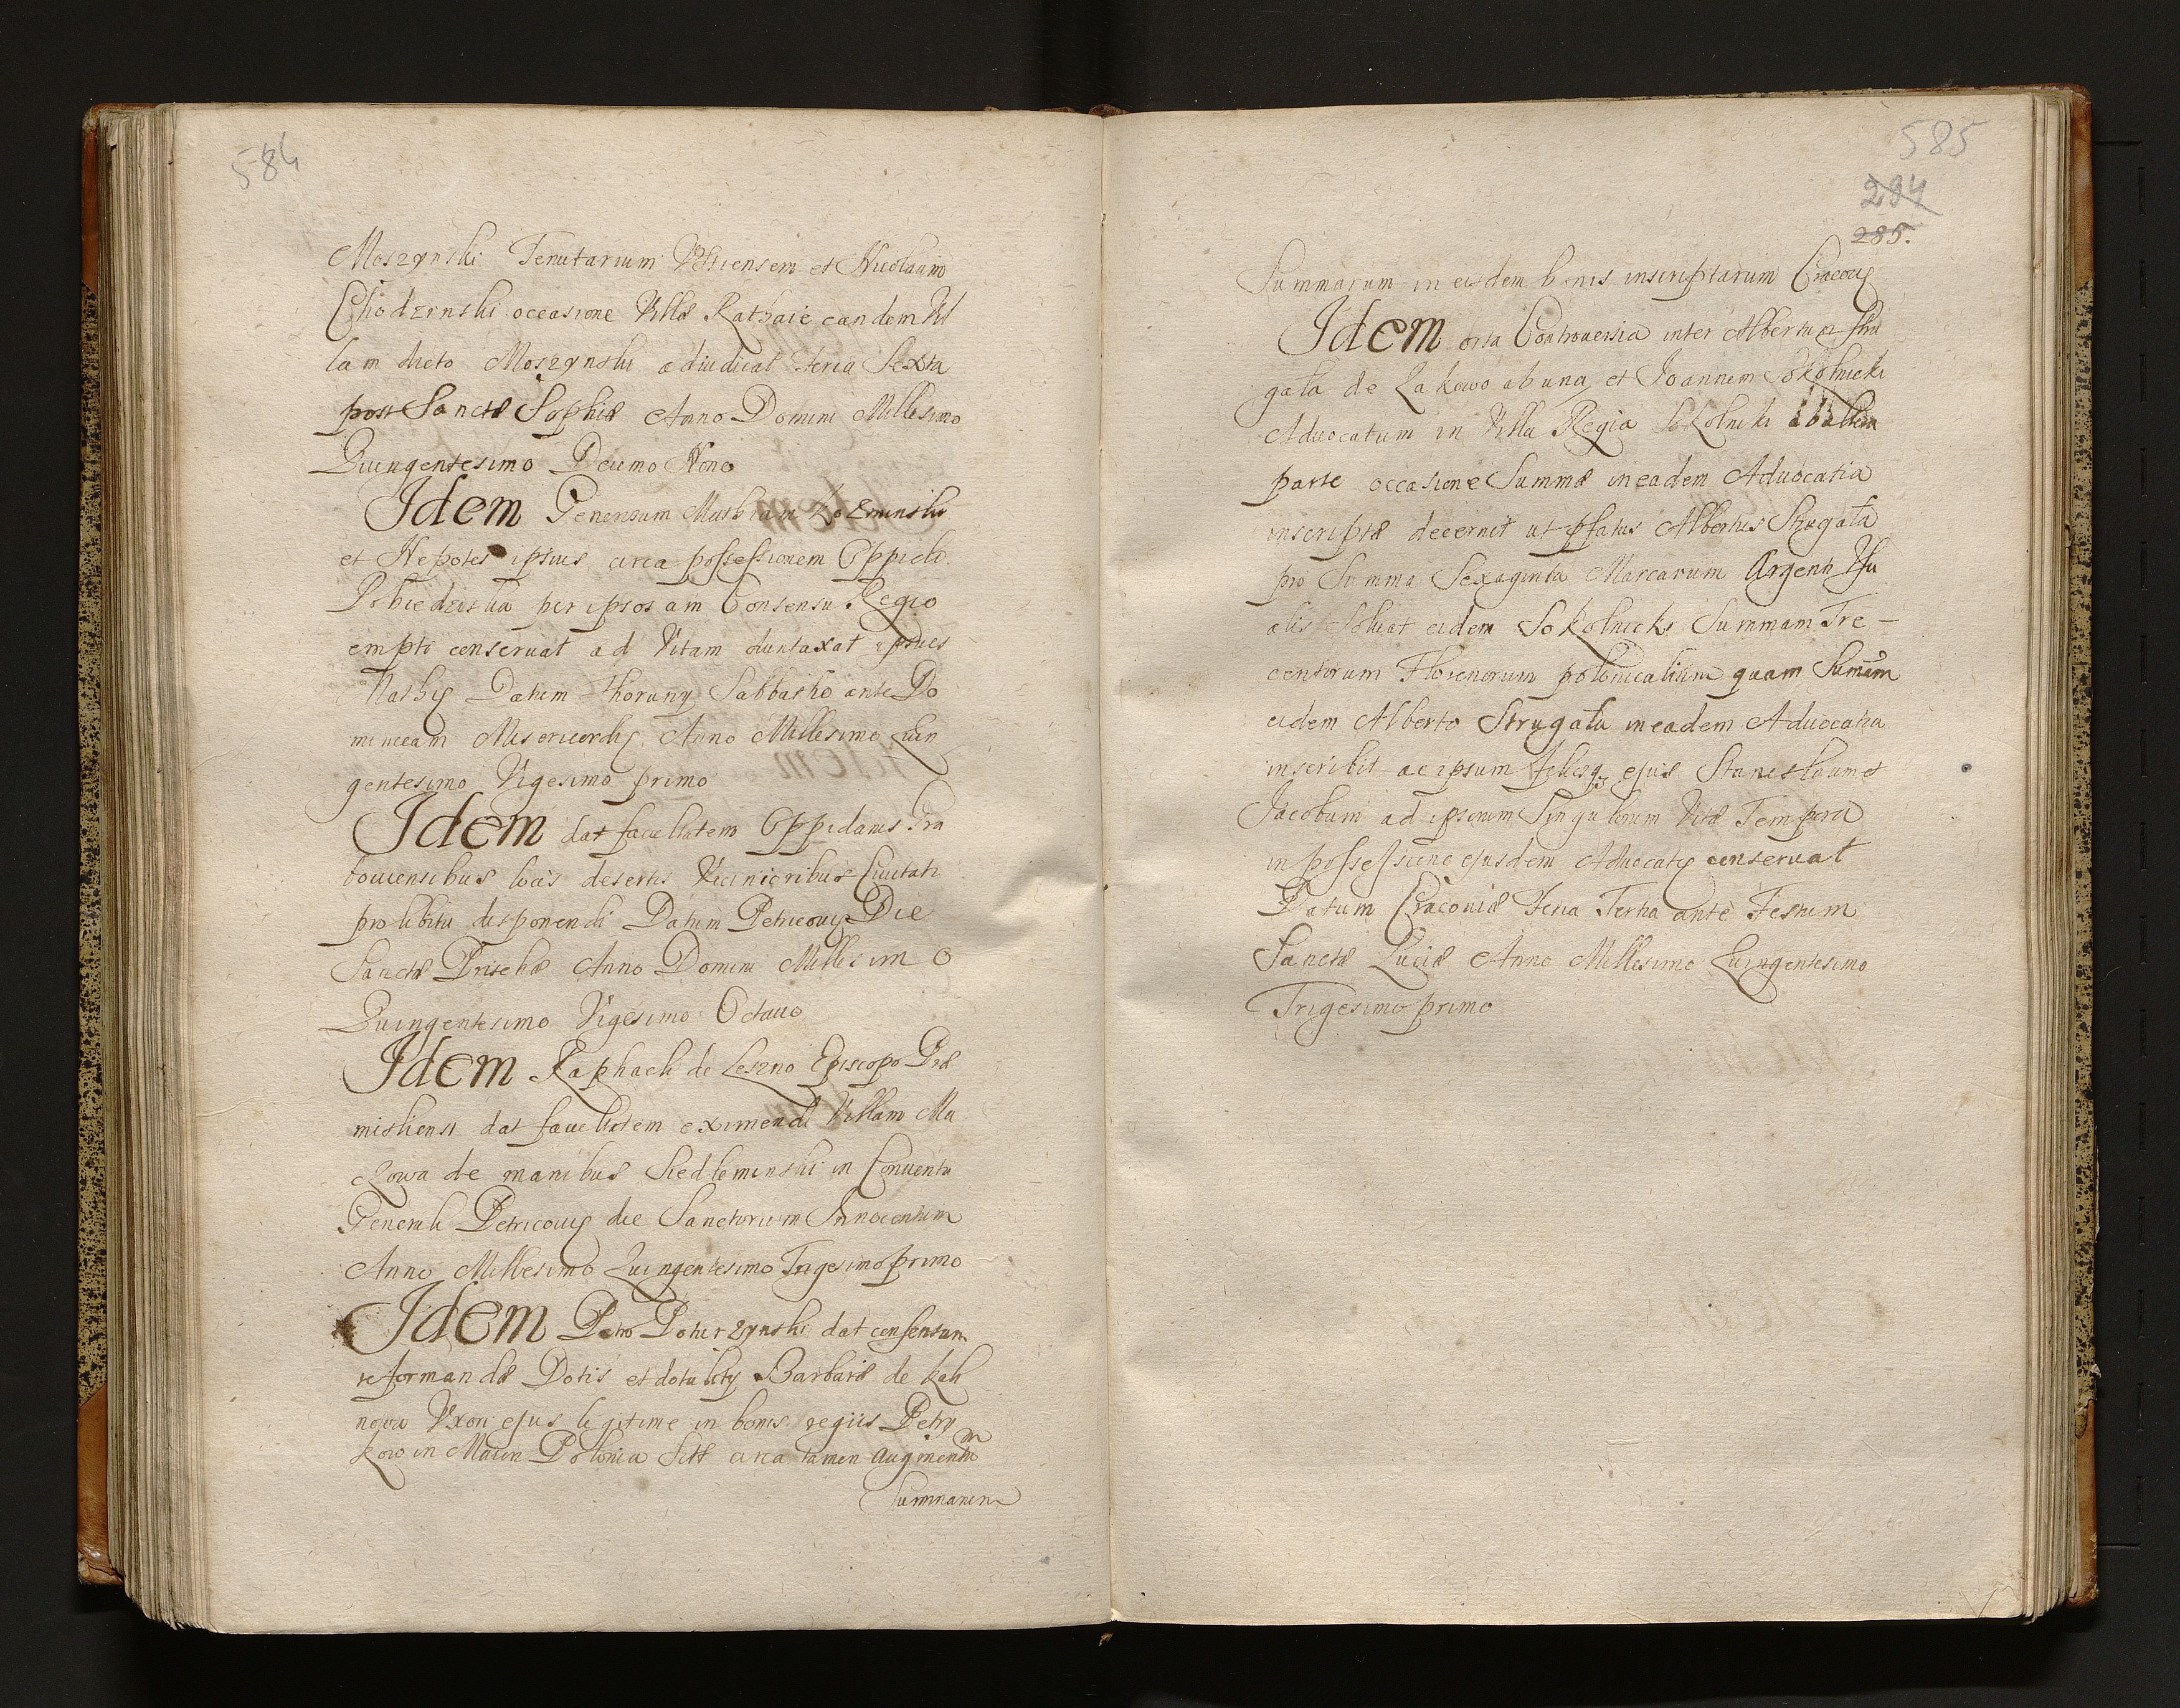 584
Moszynski Tenutarium Vstiensem et Nicolaum
Chodzynski occasione Villæ Rathaie eandem Vil
lam dicto Moszynski adiudicat feria Sexta
post Sanctæ Sophiæ Anno Domini Millesimo
Quingentesimo Decimo Nono
Idem Generosum Mathiam Kozminski
et Nepotes ipsius circa possessionem Oppidi
Pobiedziska per ipsos cum Consensu Regio
empti conseruat ad Vitam duntaxat ipsius
Mathiæ Datum Thoruniæ Sabbatho ante Do
minicam Misericordiæ Anno Millesimo Quin
gentesimo Vigesimo primo
Idem dat facultatem Oppidanis Gra
bouiensibus locis desertis Vicinioribus Ciuitati
pro libitu disponendi Datum Petricouiæ Die
Sanctæ Priscæ Anno Domini Millesimo
Quingentesimo Vigesimo Octauo
Idem Raphaeli de Leszno Episcopo Præ
misliensi dat facultatem eximendi Villam Ma
czowa de manibus Siedleminski in Conuentu
Generali Petricouiæ die Sanctorum Innocentum
Anno Millesimo Quingentesimo Trigesimo primo
Idem Petro Poturzynski dat consensum
reformandæ Dotis et dotalitÿ Barbaræ de Kali
nowa Vxori ejus legitime in bonis regiis Petry
kow in Maiori Polonia Sitis circa tamen augmentum
Summarum
585
294
285.
Summarum in eisdem bonis inscriptarum Cracouiæ
Idem orta Controuersia inter Albertum Stru
gała de Łakowo ab una et Joannem Sokolnicki
Aduocatum in Villa Regia Sokolniki ab altera
parte occasione Summæ in eadem Aduocatia
inscriptæ decernit ut pfatus Albertus Strugała
pro Summa Sexaginta Marcarum Argenti Usu
alis Soluat eidem Sokolnicki Summam Tre-
centorum Florenorum polonicalium quam Summam
eidem Alberto Strugała in eadem Aduocatia
inscribit ac ipsum filiosq; ejus Stanislaum et
Jacobum ad ipsorum Singulorum Vitæ Tempora
in possessione ejusdem Aduocatiæ conseruat
Datum Cracouiæ Feria Tertia ante Festum
Sanctæ Luciæ Anno Millesimo Quingentesimo
Trigesimo primo